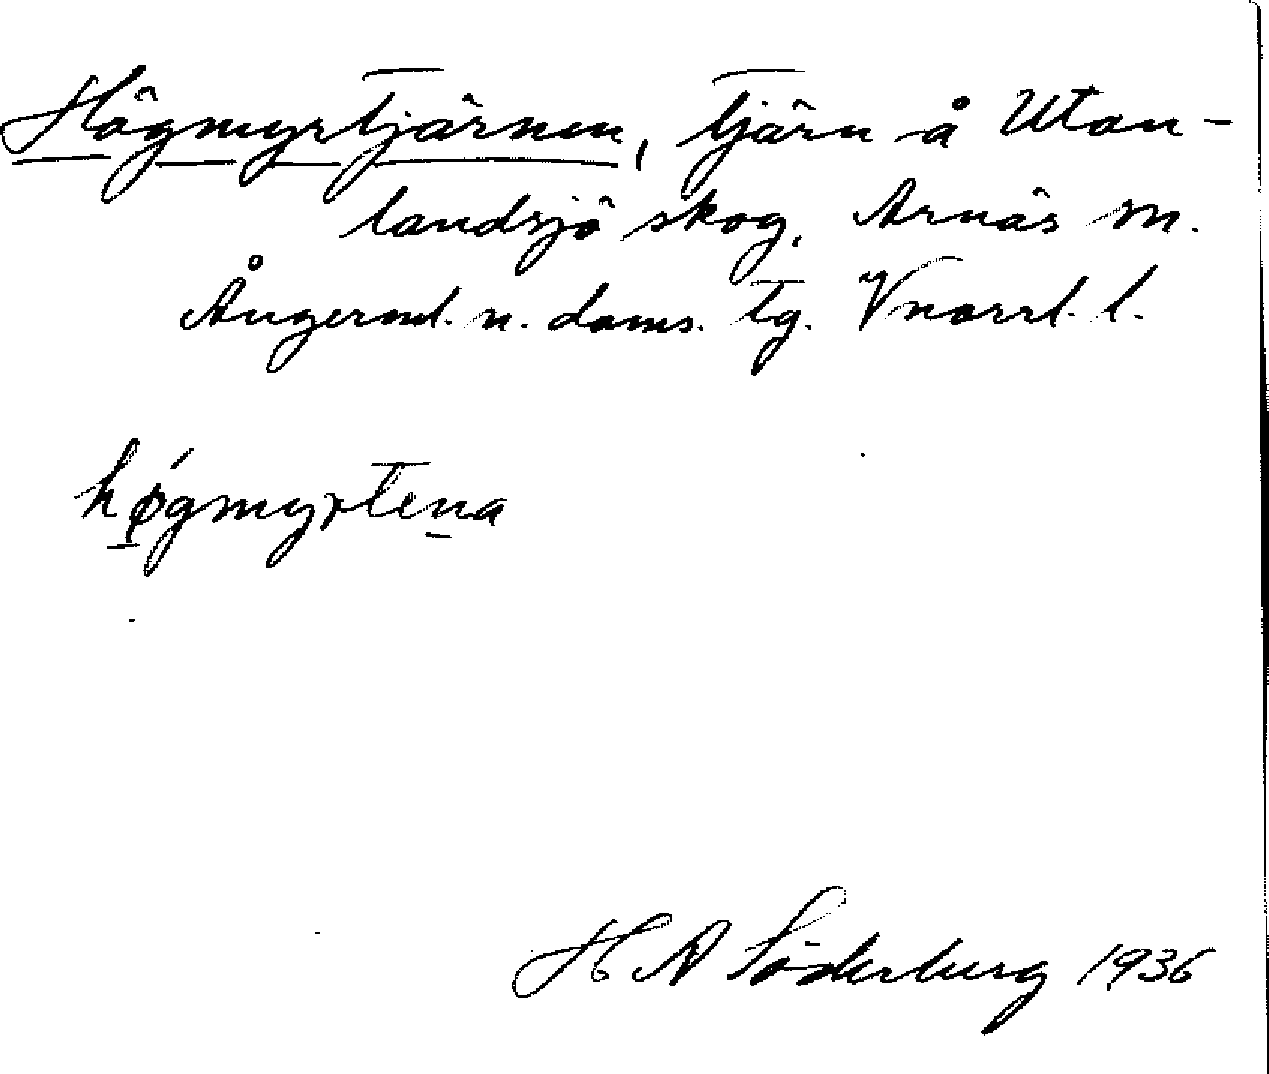 Högmyrtjärnen, tjärn å Utan-
landsjö skog, Arnäs sn.
Ångerml. n. doms. tg. Vnorrl. l.
høgmyrtena
H A Söderberg 1936